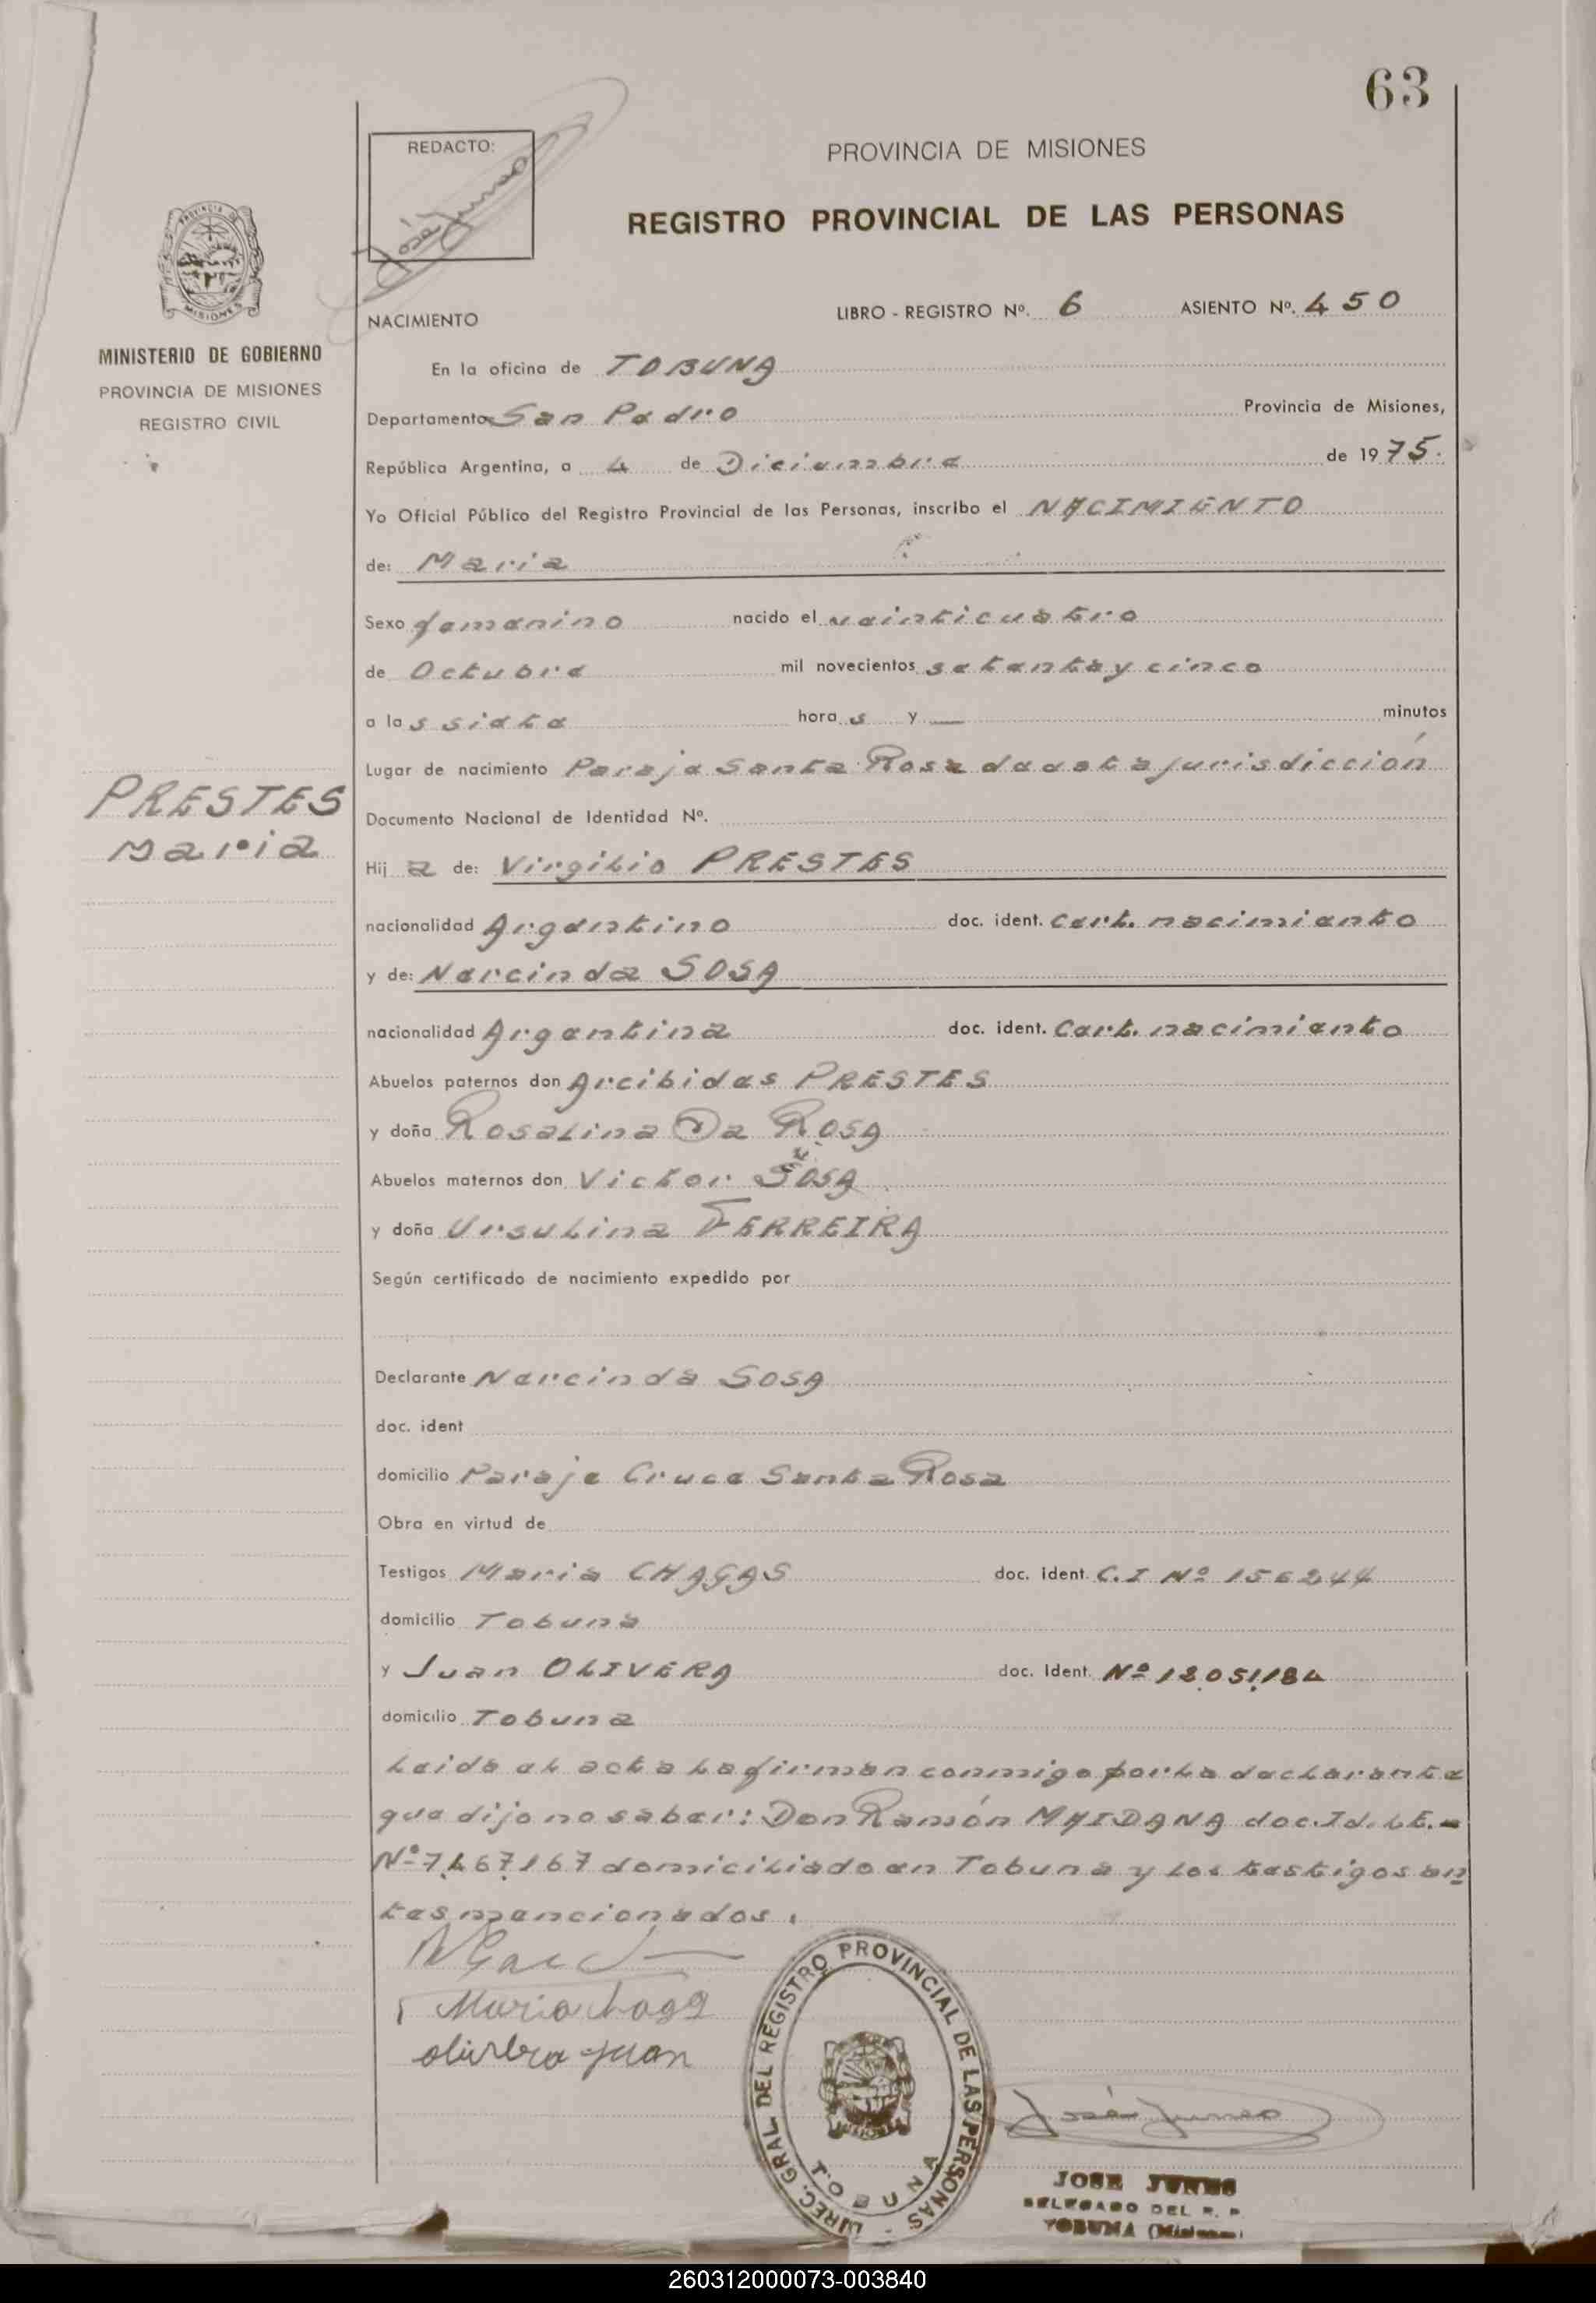 63
REDACTO:
PROVINCIA DE MISIONES
REGISTRO PROVINCIAL DE LAS PERSONAS
MINISTERIO DE GOBIERNO
PROVINCIA DE MISIONES
REGISTRO CIVIL
NACIMIENTO LIBRO - REGISTRO Nº. 6 ASIENTO Nº. 450
En la oficina de TOBUNA
Departamento San Pedro Provincia de Misiones,
República Argentina, a 4 de Diciembre de 1975.
Yo Oficial Público del Registro Provincial de las Personas, inscribo el NACIMIENTO
de: Maria
Sexo femenino nacido el veinticuatro
de Octubre mil novecientos setenta y cinco
a las siete horas y — minutos
Lugar de nacimiento Paraje Santa Rosa de esta jurisdicción
PRESTES
Maria
Documento Nacional de Identidad Nº.
Hija de: Virgilio PRESTES
nacionalidad Argentino doc. ident. Cert. nacimiento
y de: Narcinda SOSA
nacionalidad Argentina doc. ident. Cert. nacimiento
Abuelos paternos don Arcibides PRESTES
y doña Rosalina Da ROSA
Abuelos maternos don Victor SOSA
y doña Ursulina FERREIRA
Según certificado de nacimiento expedido por
Declarante Narcinda SOSA
doc. ident
domicilio Paraje Cruce Santa Rosa
Obra en virtud de
Testigos Maria CHAGAS doc. ident. C.I Nº 156244
domicilio Tobuna
y Juan OLIVERA doc. Ident. Nº 12.051.184
domicilio Tobuna
Leida el acta la firman conmigo por la declarante
que dijo no saber: Don Ramón MAIDANA doc. Id. LE.-
Nº 7.467.167 domiciliado en Tobuna y los testigos an
tes mencionados.
olivera Juan
DIREC. GRAL DEL REGISTRO PROVINCIAL DE LAS PERSONAS - TOBUNA
JOSE JUNES
DELEGADO DEL R. P.
TOBUNA (Misiones)
260312000073-003840